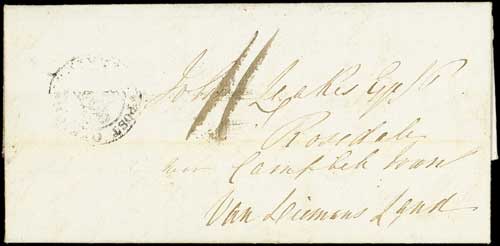 John Leake Esqr
Rosedale
near Campbell Town
Van Diemens Land
11
POST